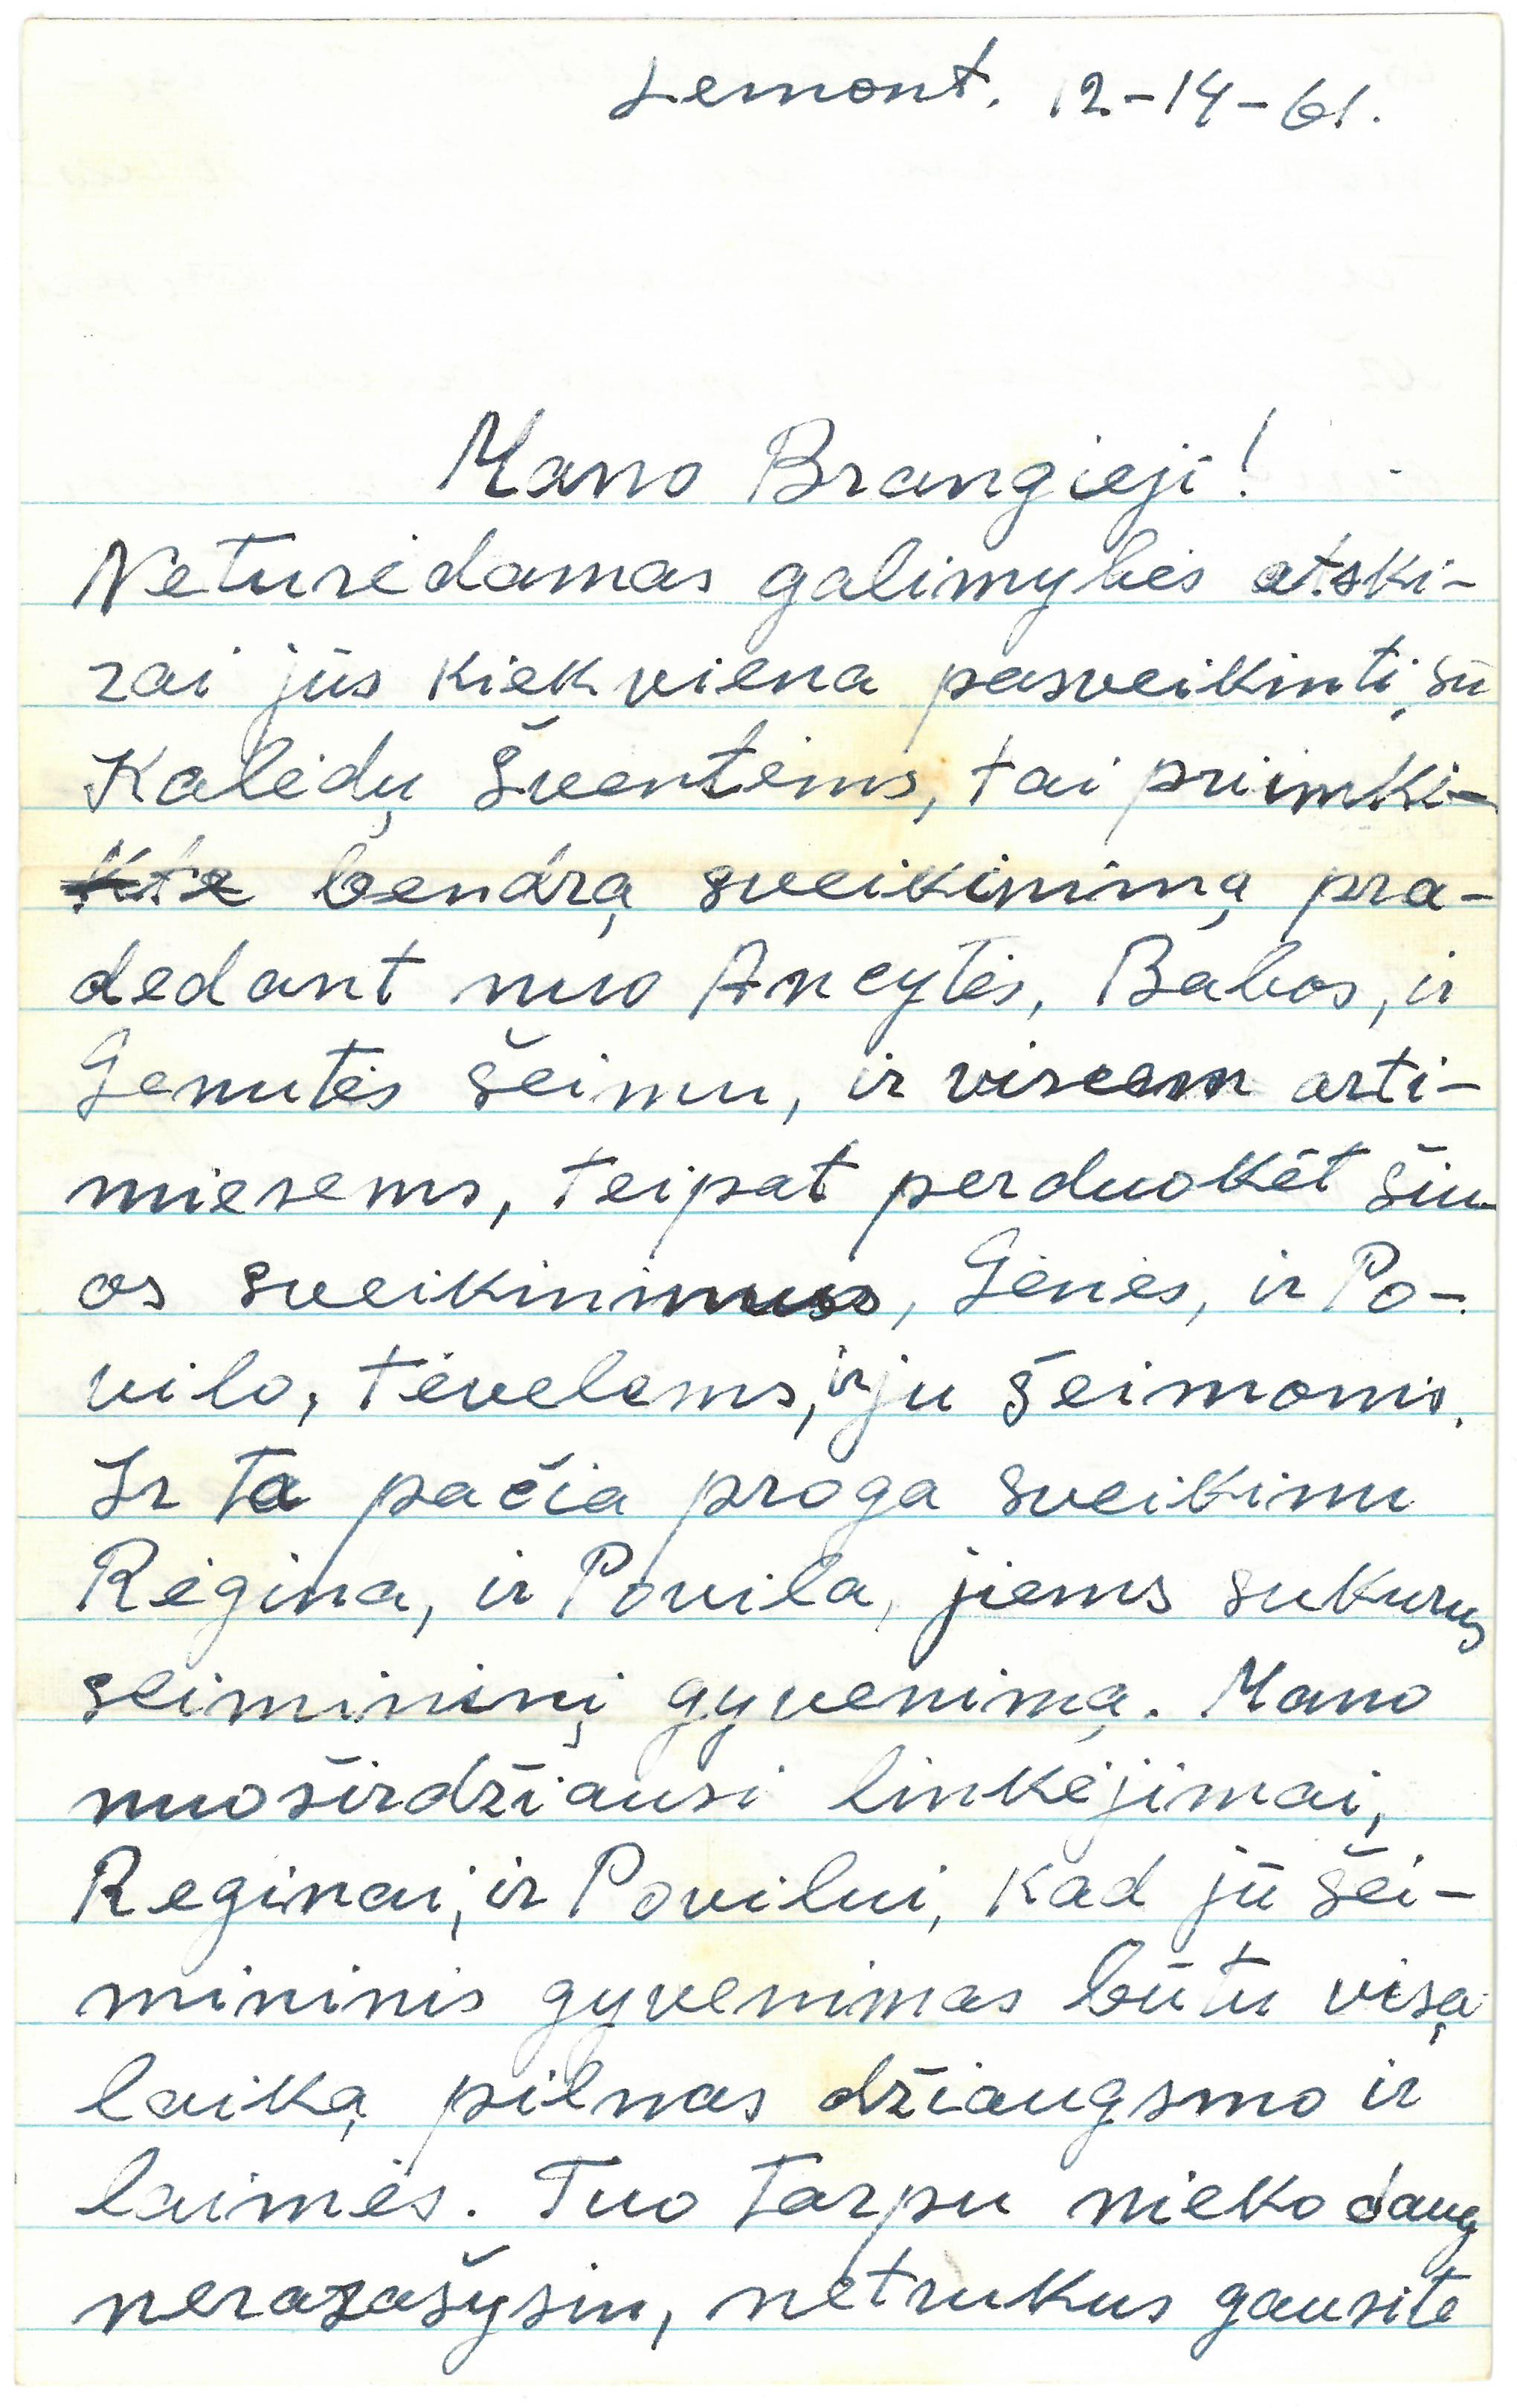 Lemont. 12-14-61.
Mano Brangieji!
Neturėdamas galimybės atski-
rai jūs kiekviena pasveikinti, su
Kalėdų Šventėms, tai priimki-
bendrą sveikinimą pra-
dedant nuo Ancytės, Babos, ir
Genutės šeimu, ir visiem arti-
miesems, teipat perduokėt šiu-
os sveikinimus, Gėnės, ir Po-
vilo, tėvelems, ir ju šeimoms.
Ir ta pačia proga sveikinu
Rėgina, ir Povila, jiems sukurus
seimininį gyvenimą. Mano
nuoširdžiausi linkėjimai,
Reginai, ir Povilui, kad jū šei-
mininis gyvenimas būtu visą
laiką pilnas džiaugsmo ir
laimės. Tuo tarpu nieko daug
nerašysiu, netrukus gausite